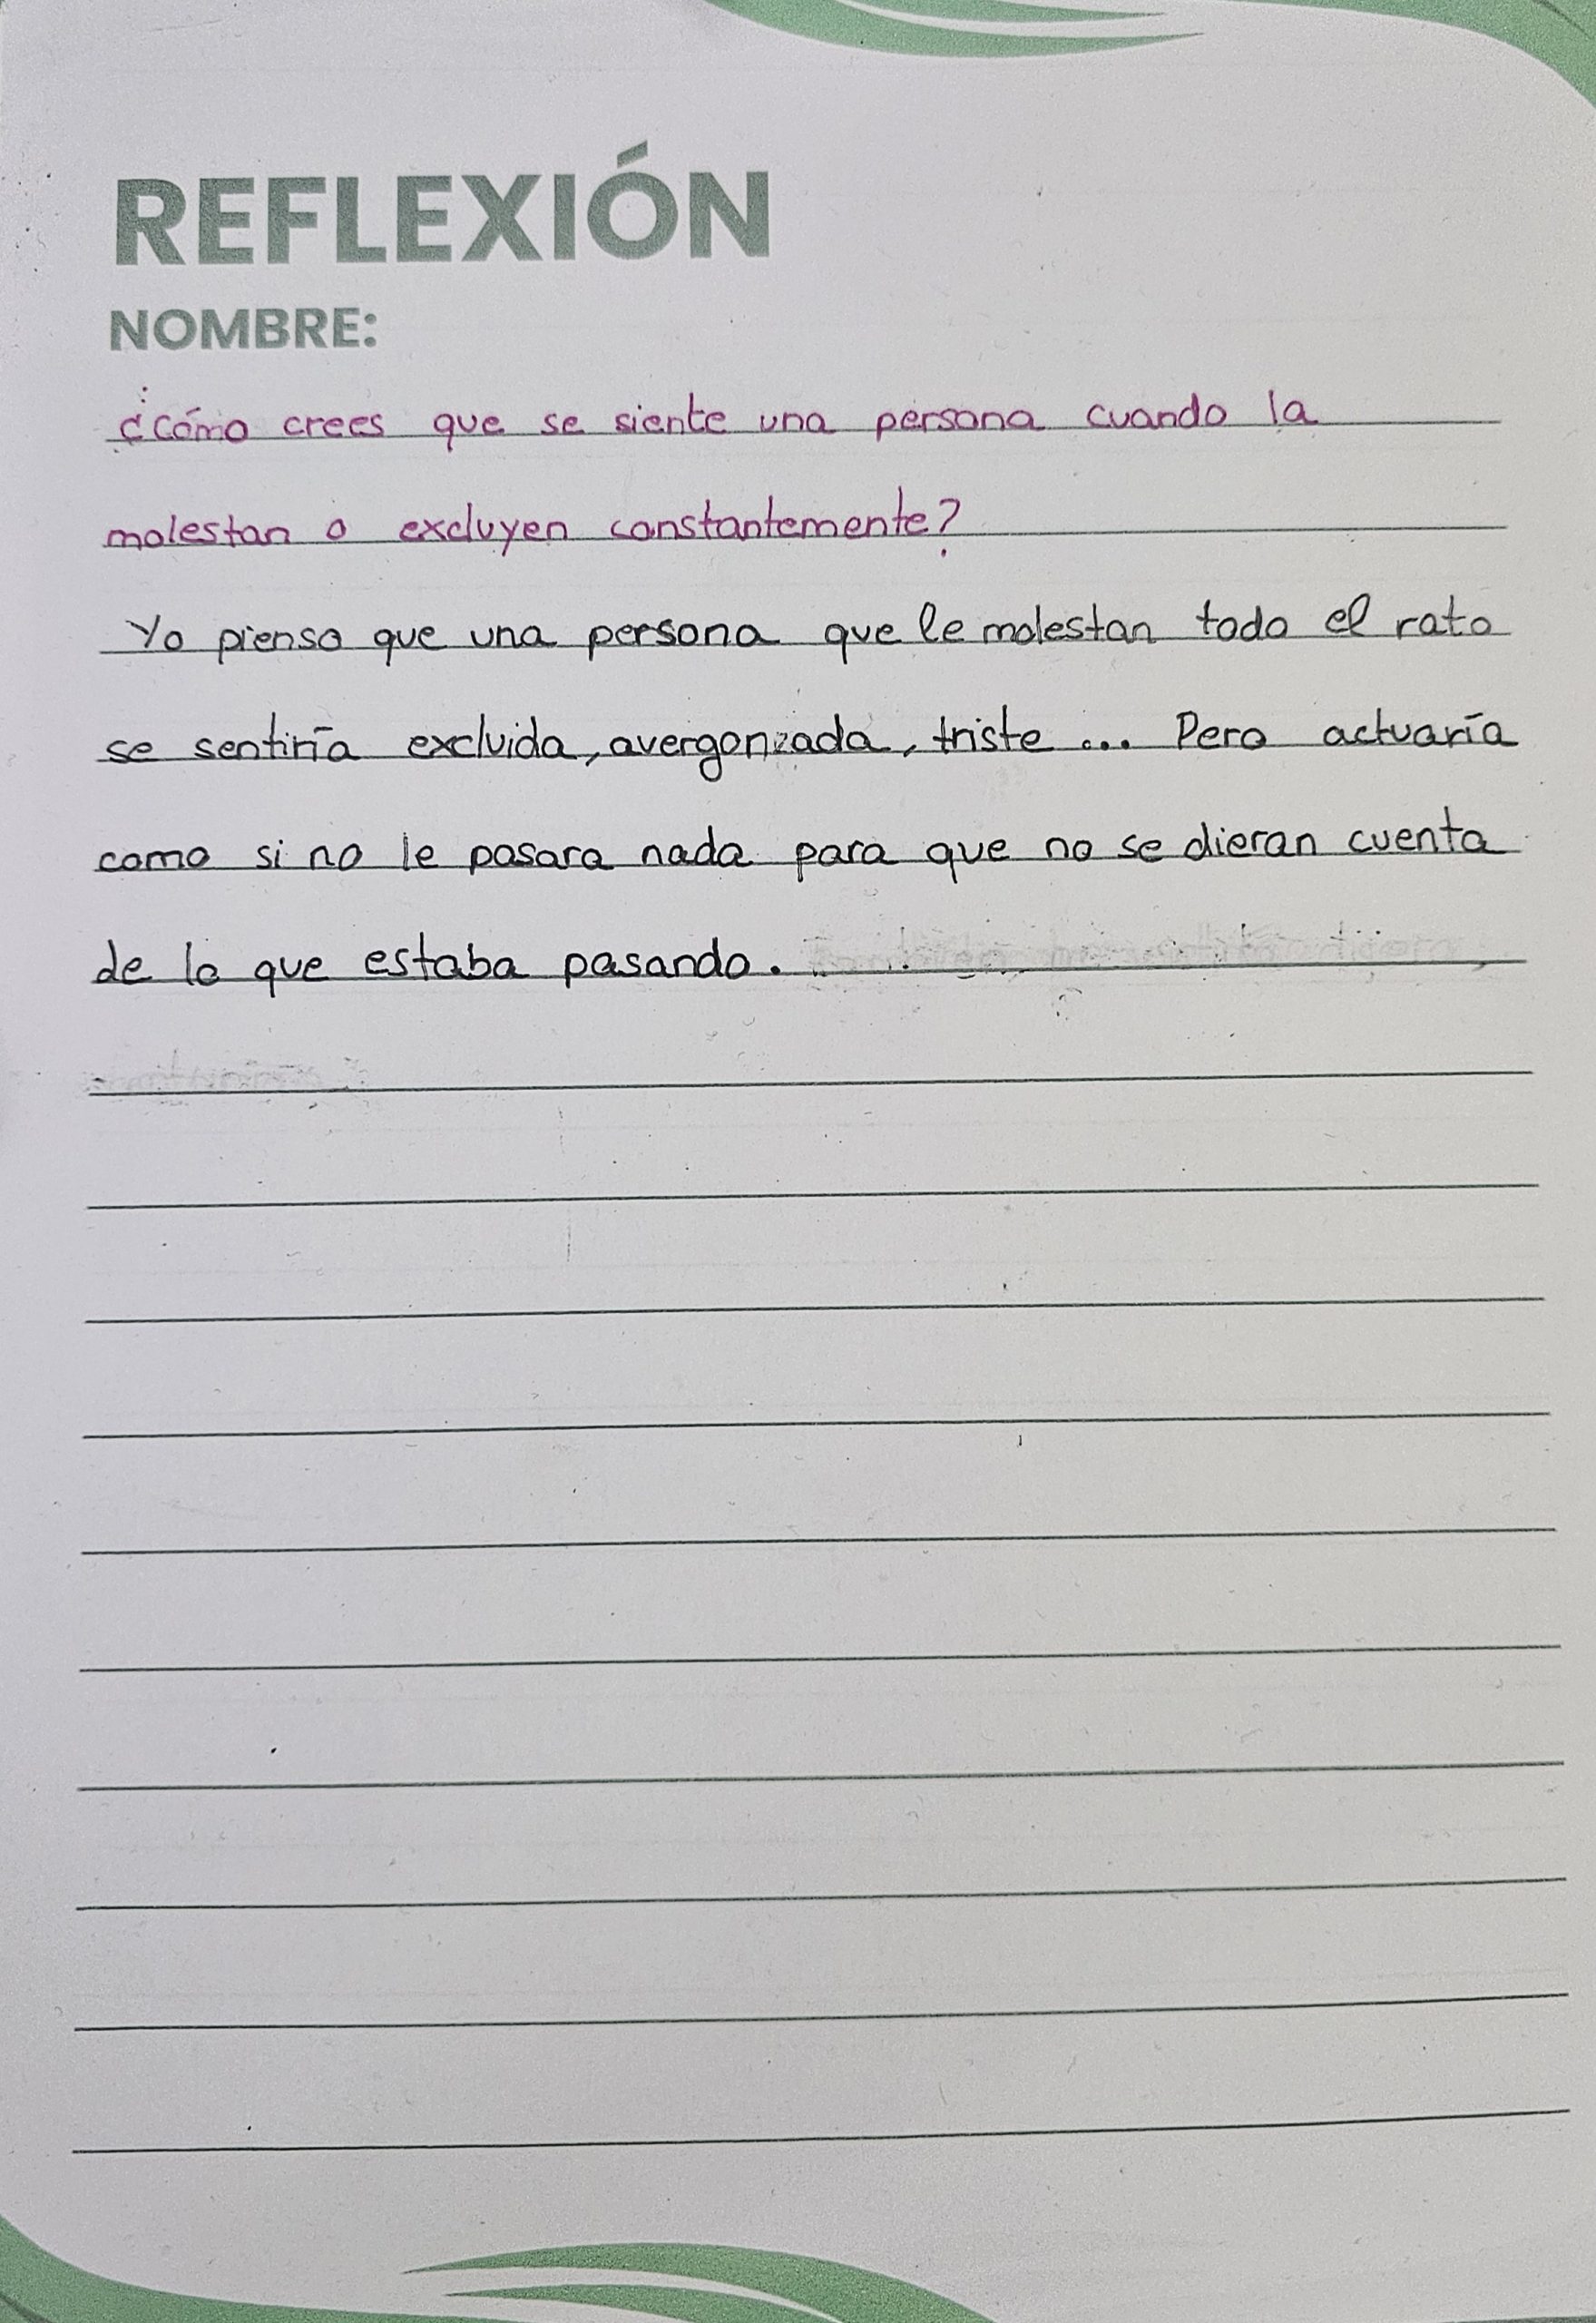 REFLEXIÓN
NOMBRE:
¿Cómo crees que se siente una persona cuando la
molestan o excluyen constantemente?
Yo pienso que una persona que le molestan todo el rato
se sentiría excluida, avergonzada, triste... Pero actuaría
como si no le pasara nada para que no se dieran cuenta
de lo que estaba pasando.